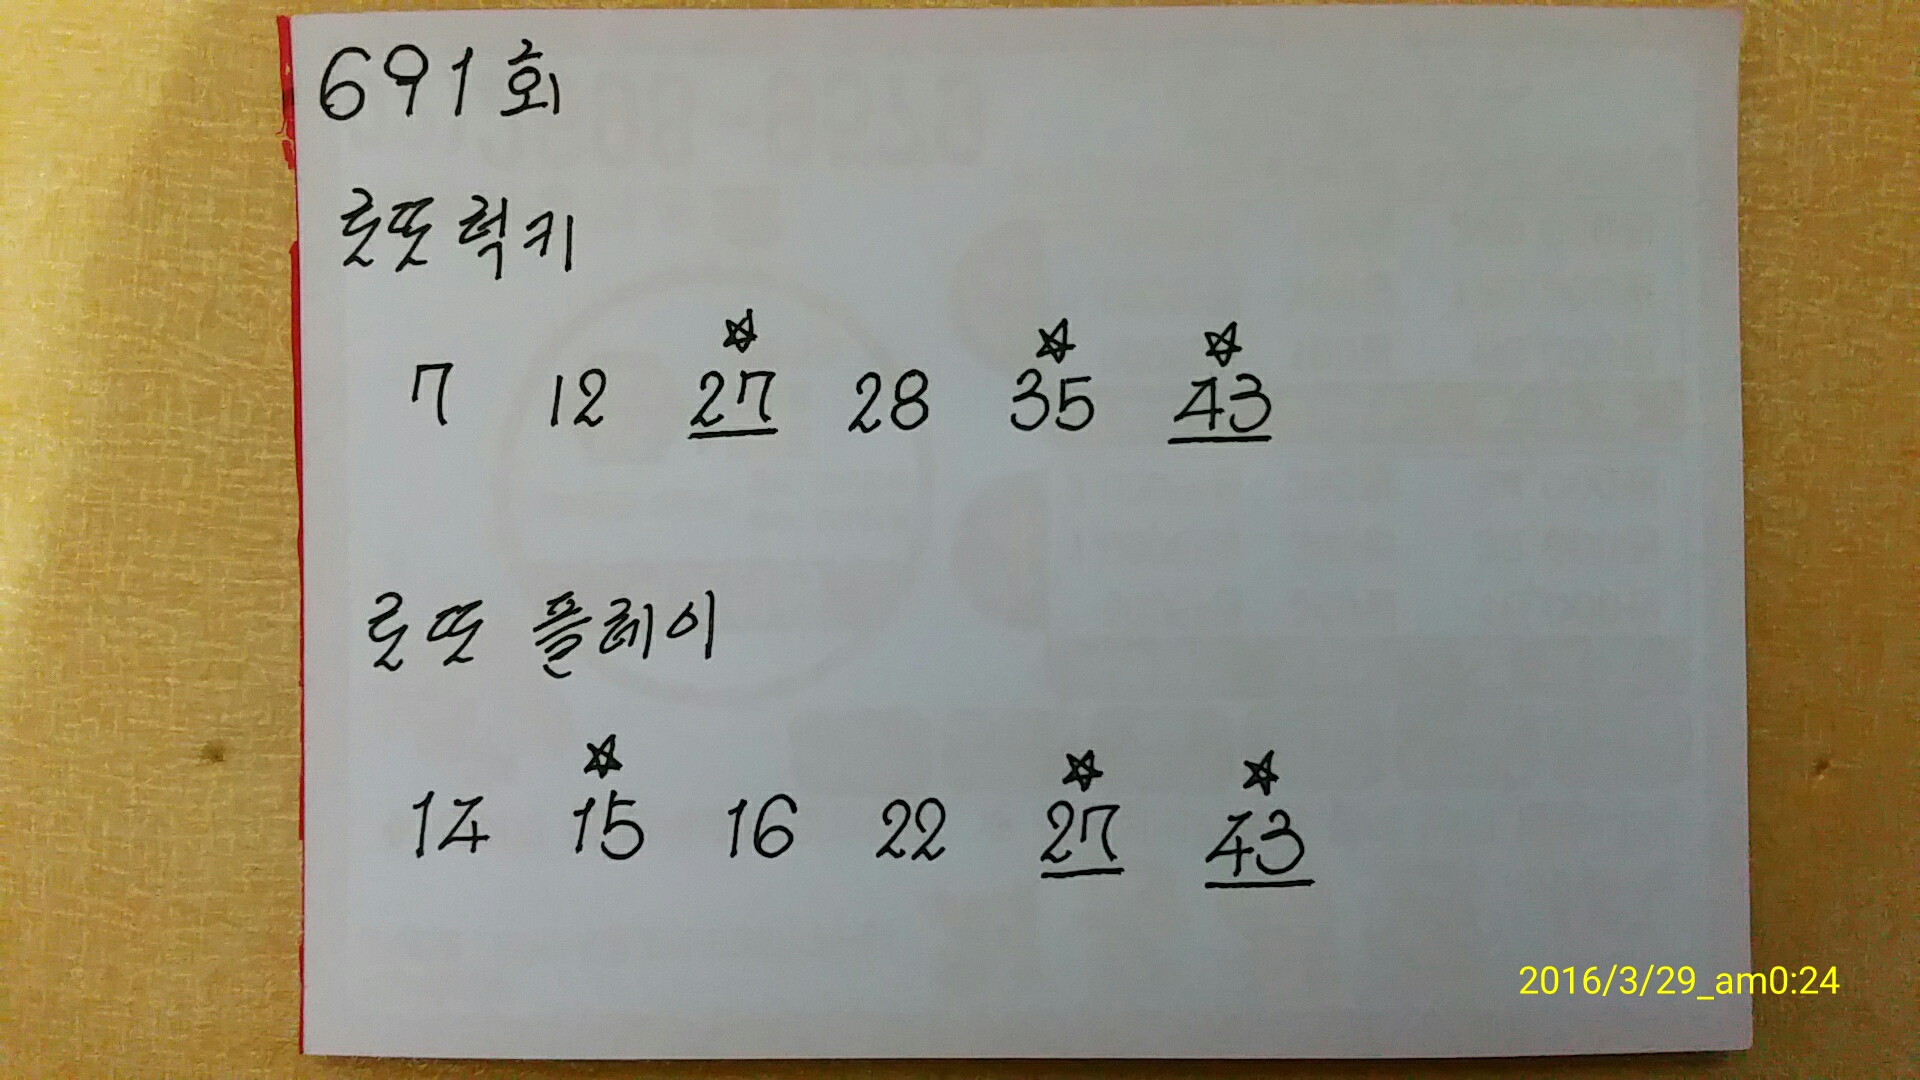 691회
로또럭키
☆ ☆ ☆
7 12 27 28 35 43
로또 플레이
☆ ☆ ☆
14 15 16 22 27 43
2016/3/29_am0:24